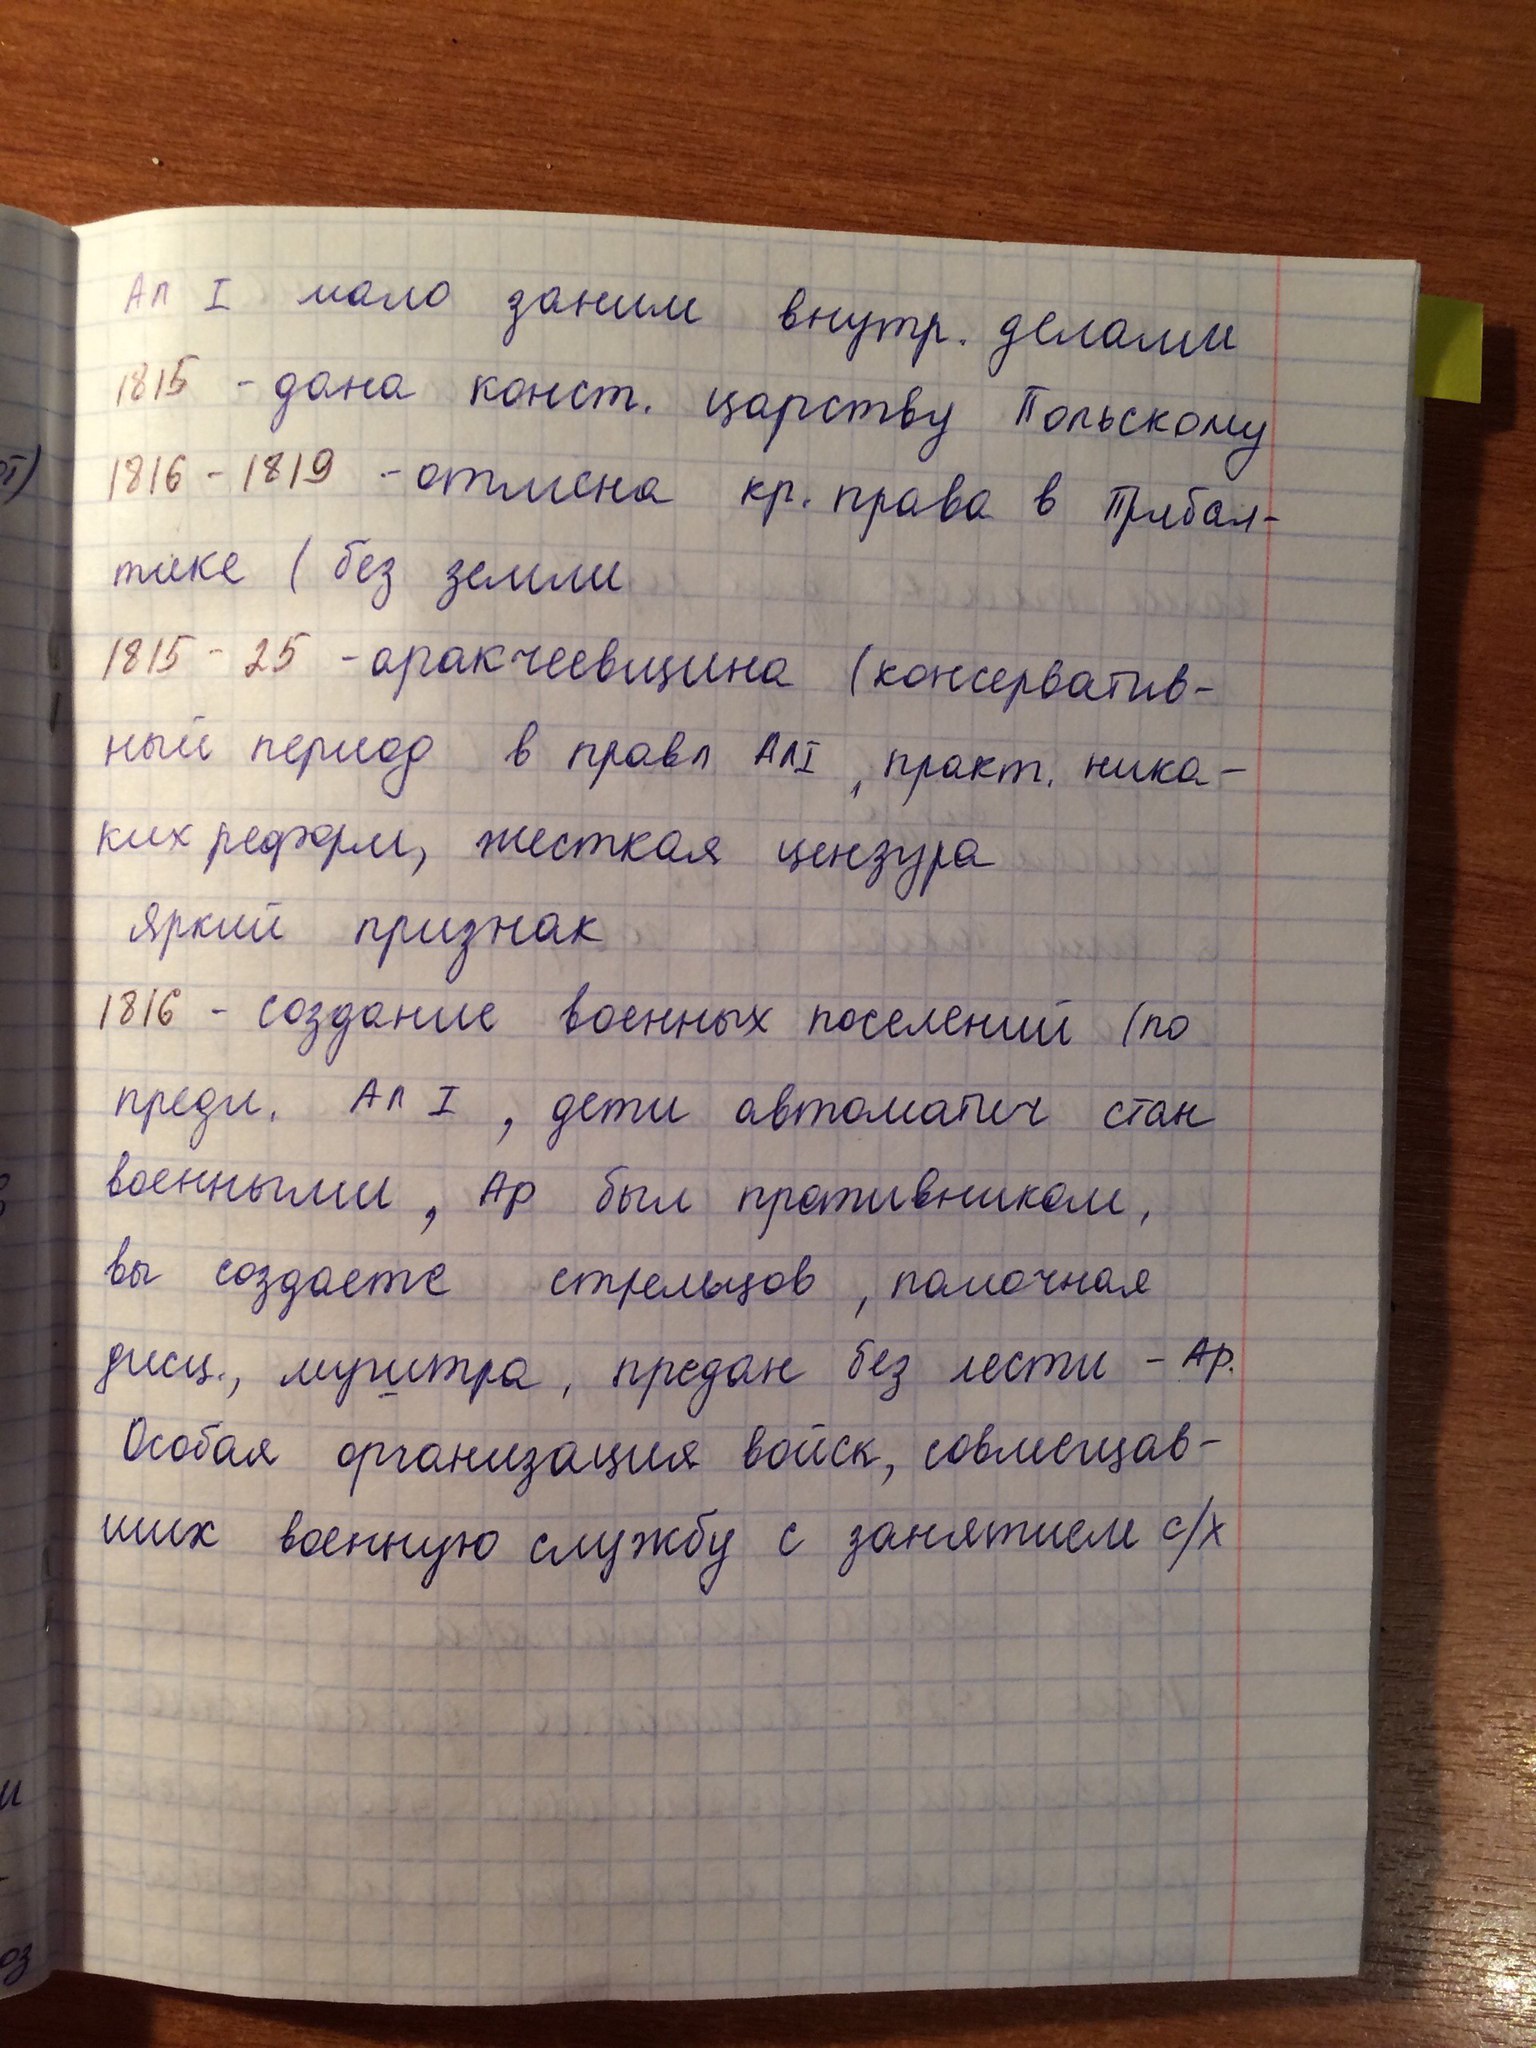 Ал I мало заним внутр. делами
1815 - дана конст. царству Польскому
1816 - 1819 - отмена кр. права в Прибал-
тике ( без земли
1815 - 25 - аракчеевщина (консерватив-
ный период в правл Ал I, практ. ника-
ких реформ, жесткая цензура
яркий признак
1816 - создание военных поселений (по
предл. Ал I , дети автоматич стан
военными, Ар был противником,
вы создаете стрельцов, палочная
дисц., муштра, предан без лести - Ар.
Особая организация войск, совмещав-
ших военную службу с занятием с/х